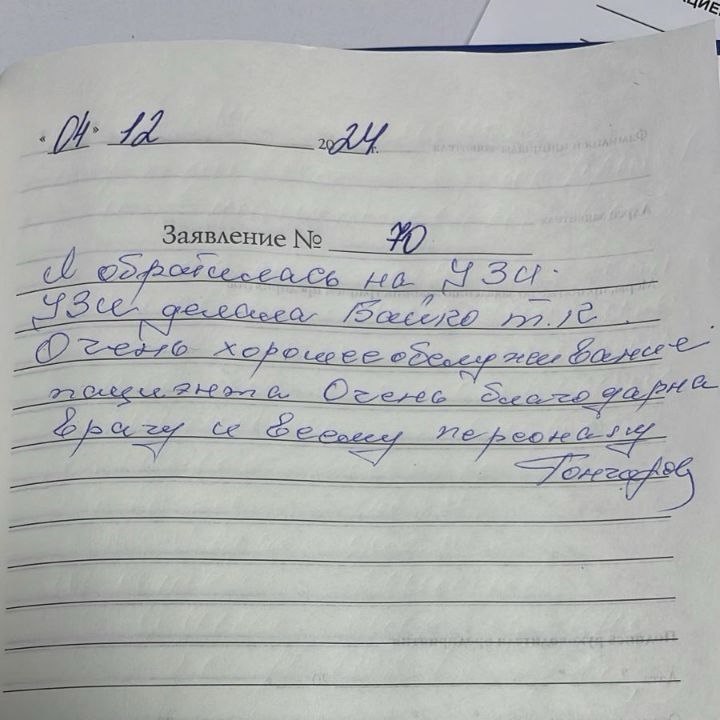 « 04 » 12 2024 г.
Заявление № 70
Я обратилась на УЗИ.
УЗИ делала Бойко Т.К.
Очень хорошее обслуживание
пациэнта Очень благодарна
врачу и всему персоналу
Гончаров